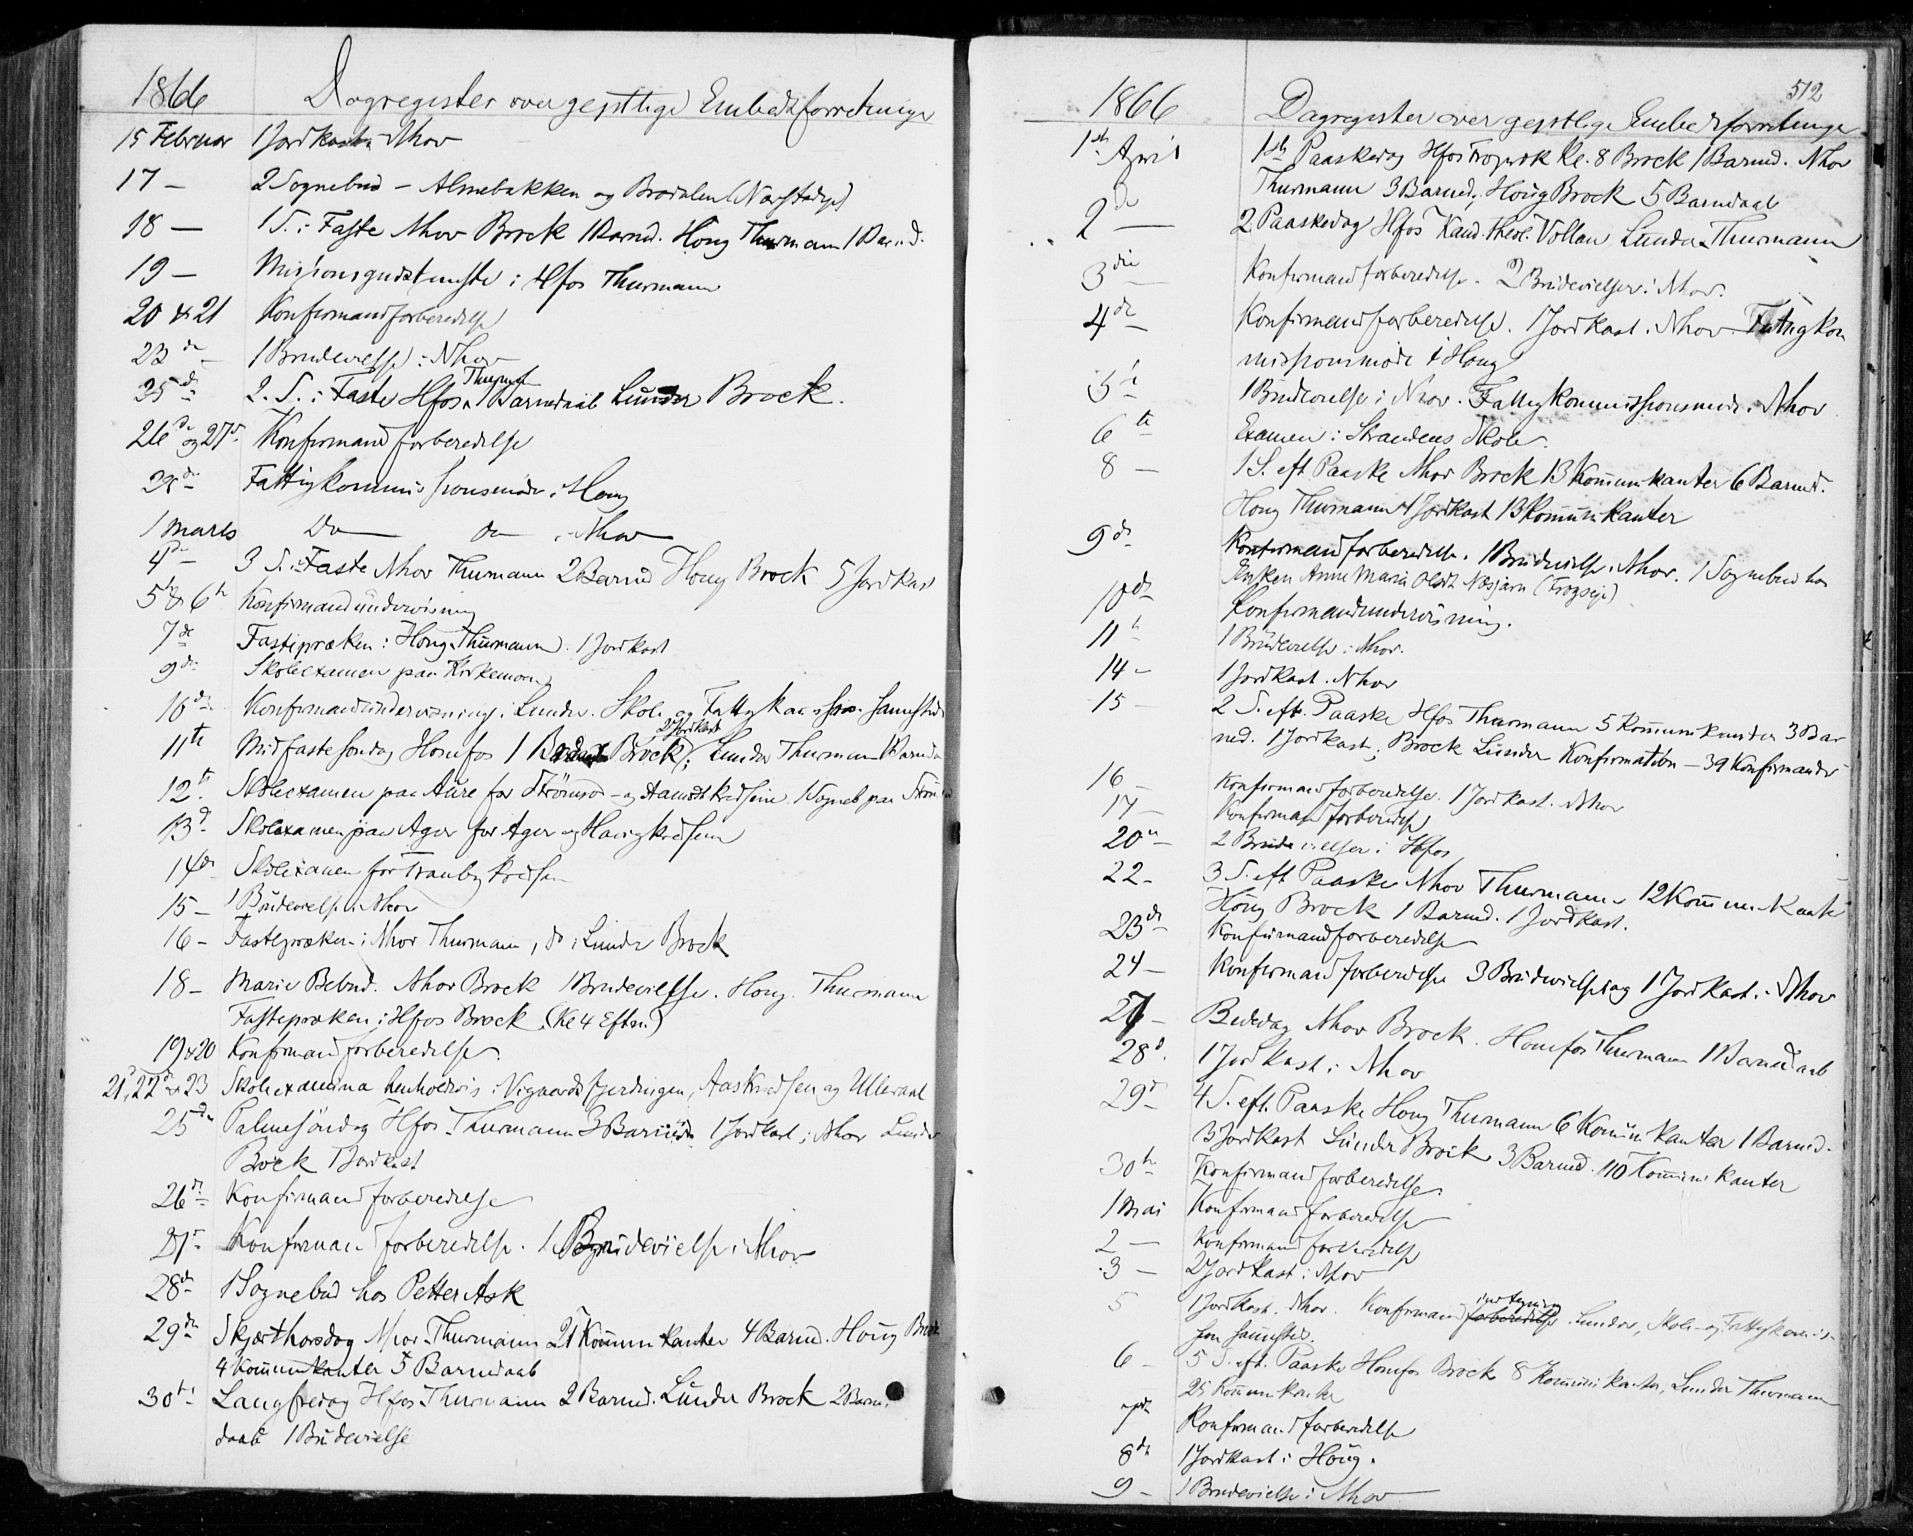 1866 Dagregister over geistlige Embedsforretninger
15 Februar 1 Jordkast Nhov
17 — 2 Sognebud – Almebakken og Bradalen
18 — 1 S. i Faste Nhov Brock 1 Barnd. Houg Thurmann 1 Barnd.
19 — Missionsgudstjeneste i Hfos Thurmann
20 & 21 Konfirmandforberedelse
23de 1 Brudevielse i Nhov
25de 2. S. i Faste Hfos Thurmann 1 Barnedaab Lunder Brock.
26de og 27de Konfirmandforberedelse
28de Fattigkommissionsmøde i Houg
1 Marts Do do i Nhov
4de 3 S. i Faste Nhov Thurmann 2 Barnd Houg Brock 5 Jordkast
5te & 6te Konfirmandundervisning
7de Fastepræken i Houg Thurmann. 1 Jordkast
9de Skoleexamen paa Kirkemoen
10de Konfirmandundervisning i Lunder. Skole og Fattigkommission sammesteds
2 Jordkast
11te Midfastesøndag Honefos 1 Brock; Lunder Thurmann 1 Barnda
12te Skoleexamen paa Aure for Strömsod- og Kredsene 1 Sogneb. paa
13de Skoleexamen paa Ager for Ager og Haugkredsene
14de Skoleexamen for Tranby Kredsen
15 — 1 Brudevielse i Nhov
16 — Fastepræken i Nhov Thurmann, do i Lunder Brock
18 — Marie Bebud. Nhov Brock 1 Brudevielse. Houg Thurmann
Fastepræken i Hfos Brock (Kl 4 Eftm.)
19 & 20 Konfirmandforberedelse.
21, 22de & 23 Skoleexamina henholdsvis i Vegaardsfjerdingen, Aaskredsen og Ulleraal
25de Palmesöndag Hfos Thurmann 3 Barned. 1 Jordkast i Nhov Lunder
Brock 1 Jordkast
26de Konfirmandforberedelse
27de Konfirmandforberedelse. 1 Brudevielse i Nhov
28de 1 Sognebud hos Petter Ask
29de Skjærthorsdag Nhov Thurmann 21 Kommunikanter 4 Barnd. Houg Brock
4 Kommunikanter 5 Barnedaab
30te Langfredag Hfos Thurmann 2 Barned. Lunder Brock 2 Barne-
daab 1 Brudevielse
512
1866 Dagregister over geistlige Embedsforretninger
1ste April 1ste Paaskedag Hfos Kl. 8 Brock 1 Barned. Nhov
Thurmann 3 Barned. Houg Brock 5 Barndaab
2de — 2 Paaskedag Hfos Kand. theol. Vollan Lunder Thurmann
3die Konfirmandforberedelse. 2 Brudevielser i Nhov.
4de Konfirmandforberedelse. 1 Jordkast. Nhov. Fattigkom
missionsmøde i Houg
5te 1 Brudevielse i Nhov. Fattigkommissionsmøde i Nhov
6te Examen i Strandens Skole.
8 — 1 S. eft Paaske Nhov Brock 13 Kommunikanter 6 Barned.
Houg Thurmann 1 Jordkast 13 Kommunikanter
9de Konfirmandforberedelse. 1 Brudevielse i Nhov. 1 Sognebud hos
Enken Anne Maria Næsjarn
10de Konfirmandundervisning.
11te 1 Brudevielse i Nhov.
14 — 1 Jordkast. Nhov
15 — 2 S. eft. Paaske Hfos Thurmann 5 Kommunikanter 3 Bar-
ned. 1 Jordkast; Brock Lunder Konfirmation – 39 Konfirmander
16 — Konfirmandforberedelse. 1 Jordkast. Nhov
17 — Konfirmandforberedelse
20de 2 Brudevielser i Hfos
22 — 3 S. eft Paaske Nhov Thurmann 12 Kommunikanter
Houg Brock 1 Barned. 1 Jordkast.
23de Konfirmandforberedelse
24 — Konfirmandforberedelse 3 Brudevielse og 1 Jordkast. i Nhov
27 — Bededag Nhov Brock. Honefos Thurmann 1 Barnedaab
28de 1 Jordkast i Nhov
29de 4 S. eft. Paaske Houg Thurmann 6 Kommunikanter 1 Barned.
3 Jordkast Lunder Brock 3 Barned. 110 Kommunikanter
30te Konfirmandforberedelse
1 Mai Konfirmandforberedelse
2 — Konfirmandforberedelse
3 — 2 Jordkast i Nhov
5 1 Jordkast. Nhov. Konfirmand forberedelse indtegning Lunder, Skole- og Fattigkommis-
sion sammesteds.
6 — 5 S. eft. Paaske Honefos Brock 8 Kommunikanter, Lunder Thurmann
25 Kommunikanter
7de Konfirmandforberedelse
8de 1 Jordkast i Houg.
9 — 1 Brudevielse i Nhov